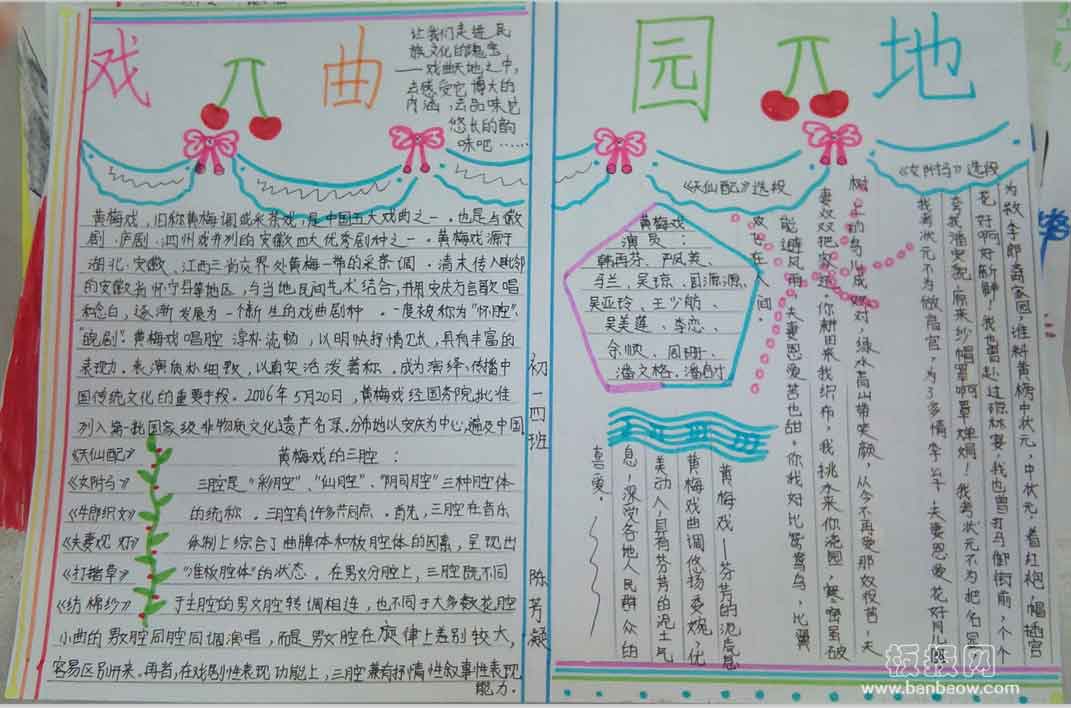 戏曲园地
让我们走进民
族文化的瑰宝
——戏曲天地之中,
去感受它博大的
内涵,去品味它
悠长的韵
味吧……
黄梅戏,旧称黄梅调或采茶戏,是中国五大戏曲之一。也是与徽
剧、庐剧、泗州戏并列的安徽四大优秀剧种之一。黄梅戏源于
湖北、安徽、江西三省交界处黄梅一带的采茶调。清末传入毗邻
的安徽省怀宁县等地区,与当地民间艺术结合,并用安庆方言歌唱
和念白,逐渐发展为一个新生的戏曲剧种。一度被称为“怀腔”、
“皖剧”.黄梅戏唱腔淳朴流畅,以明快抒情见长,具有丰富的
表现力。表演质朴细致,以真实活泼著称,成为演绎、传播中
国传统文化的重要手段。2006年5月20日,黄梅戏经国务院批准
列入第一批国家级非物质文化遗产名录。分布地以安庆为中心,遍及中国
《天仙配》
《女附马》
《牛郎织女》
《夫妻观灯》
《打猪草》
《纺棉纱》
黄梅戏的三腔:
三腔是“彩腔”、“仙腔”、“阴司腔”三种腔体
的统称。三腔有许多共同点。首先,三腔在音乐
体制上综合了曲牌体和板腔体的因素,呈现出
“准板腔体”的状态。在男女分腔上,三腔既不同
于主腔的男女腔转调相连,也不同于大多数花腔
小曲的男女腔同腔同调演唱,而是男女腔在旋律上差别较大,
容易区别开来。再者,在戏剧性表现功能上,三腔兼有抒情性叙事性表现
能力.
初一四班
陈芳凝
黄梅戏
演员:
韩再芬、严凤英、
马兰、吴琼、田源源、
吴亚玲、王少舫、
吴美莲、李恋、
余顺、周珊、
潘文格、潘启才
《天仙配》选段
树上的鸟儿成双对,绿水青山带笑颜,从今不再受那奴役苦,夫
妻双双把家还。你耕田来我织布,我挑水来你浇园,寒窑虽破
能避风雨,夫妻恩爱苦也甜。你我好比鸳鸯鸟,比翼
双飞在人间。
《女附马》选段
为救李郎离家园,谁料黄榜中状元,中状元,着红袍,帽插宫
花好啊好新鲜!我也曾赴过琼林宴,我也曾打马御街前,个个
夸我潘安貌,原来纱帽罩啊罩婵娟!我考状元不为把名显
我考状元不为做高官,为了多情李公子,夫妻恩爱花好月儿圆
黄梅戏——芬芳的泥
黄梅戏曲调悠扬委婉,优
美动人,具有芬芳的泥土气
息,深受各地人民群众的
喜爱。
板报网
www.banbaow.com